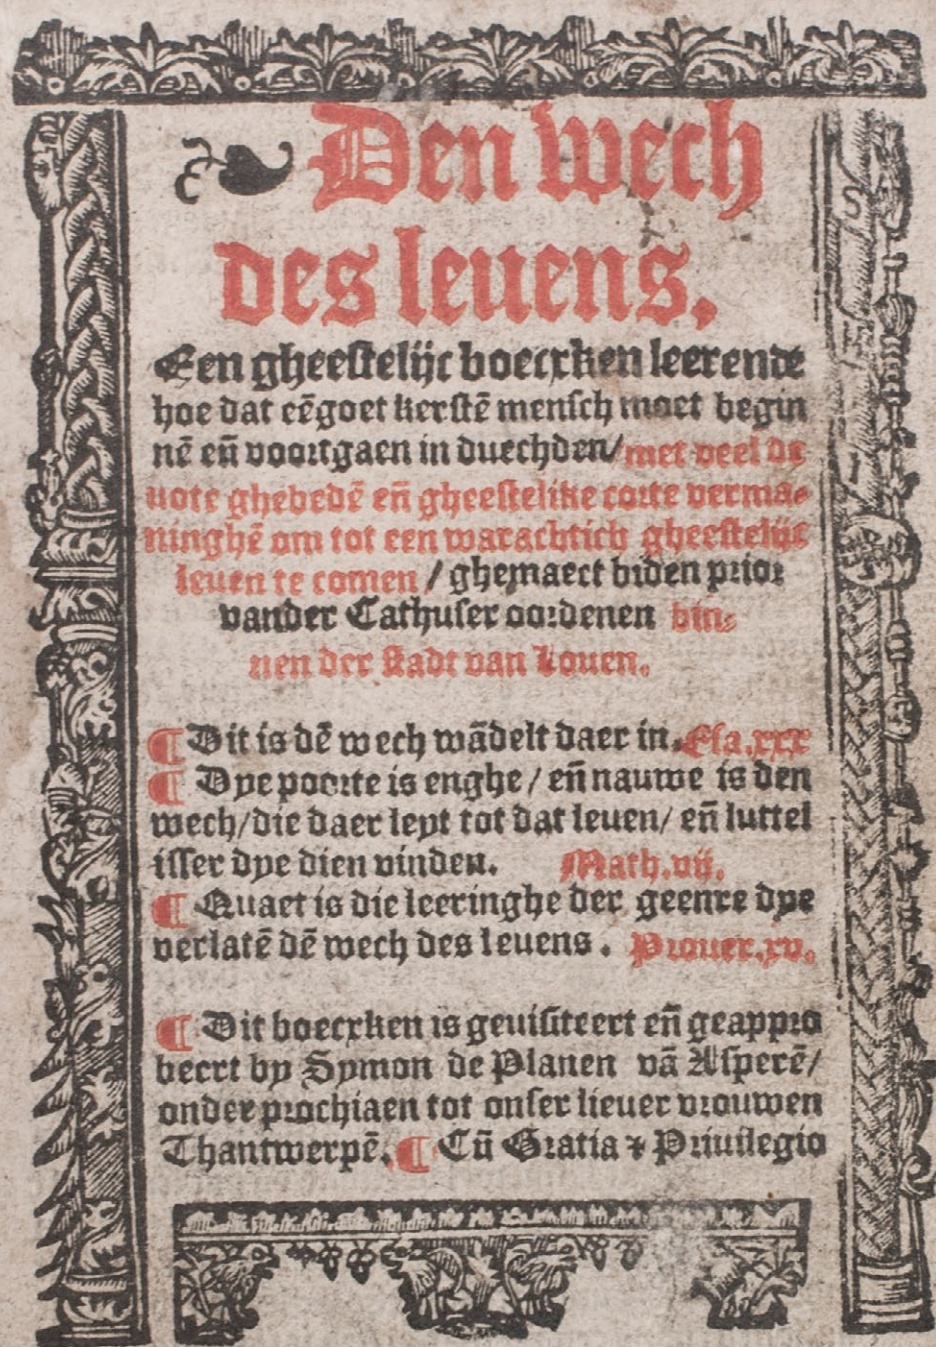 Den wech
des leuens.
Een gheestelijc boecxken leerende
hoe dat eē goet kerstē mensch moet begin
nē eñ voortgaen in duechden/ met veel de
uote ghebedē eñ gheestelike corte verma⸗
ninghē om tot een warachtich gheestelijc
leuen te comen / ghemaect biden prior
vander Cathuser oordenen bin⸗
nen der stadt van Louen.
¶ Dit is dē wech wādelt daer in. Esa.xxx
¶ Dye poorte is enghe / eñ nauwe is den
wech/die daer leyt tot dat leuen/ eñ luttel
isser dye dien vinden. Math.vij.
¶ Quaet is die leeringhe der geenre dye
verlatē dē wech des leuens. Prouer.xv.
¶ Dit boecxken is geuisiteert eñ geappro
beert by Symon de Planen vā Asperē/
onder prochiaen tot onser lieuer vrouwen
Thantwerpē. ¶ Cū Gratia ⁊ Priuilegio